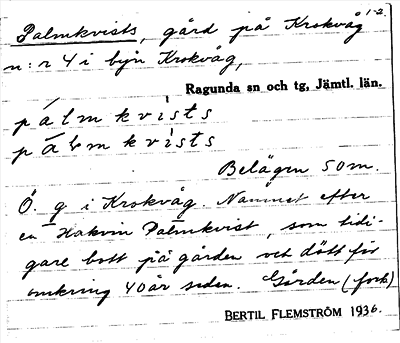 Palmkvists, gård på Krokvåg 1-2.
n:r 4 i byn Krokvåg,
Ragunda sn och tg, Jämtl. län.
pálmkvìsts
Belägen som
Ö. g i Krokvåg. Namnet efter
en Hakvin Palmkvist, som tidi-
gare bott på gården och dött för
omkring 40 år sedan. Gården (forts)
BERTIL FLEMSTRÖM 1936.